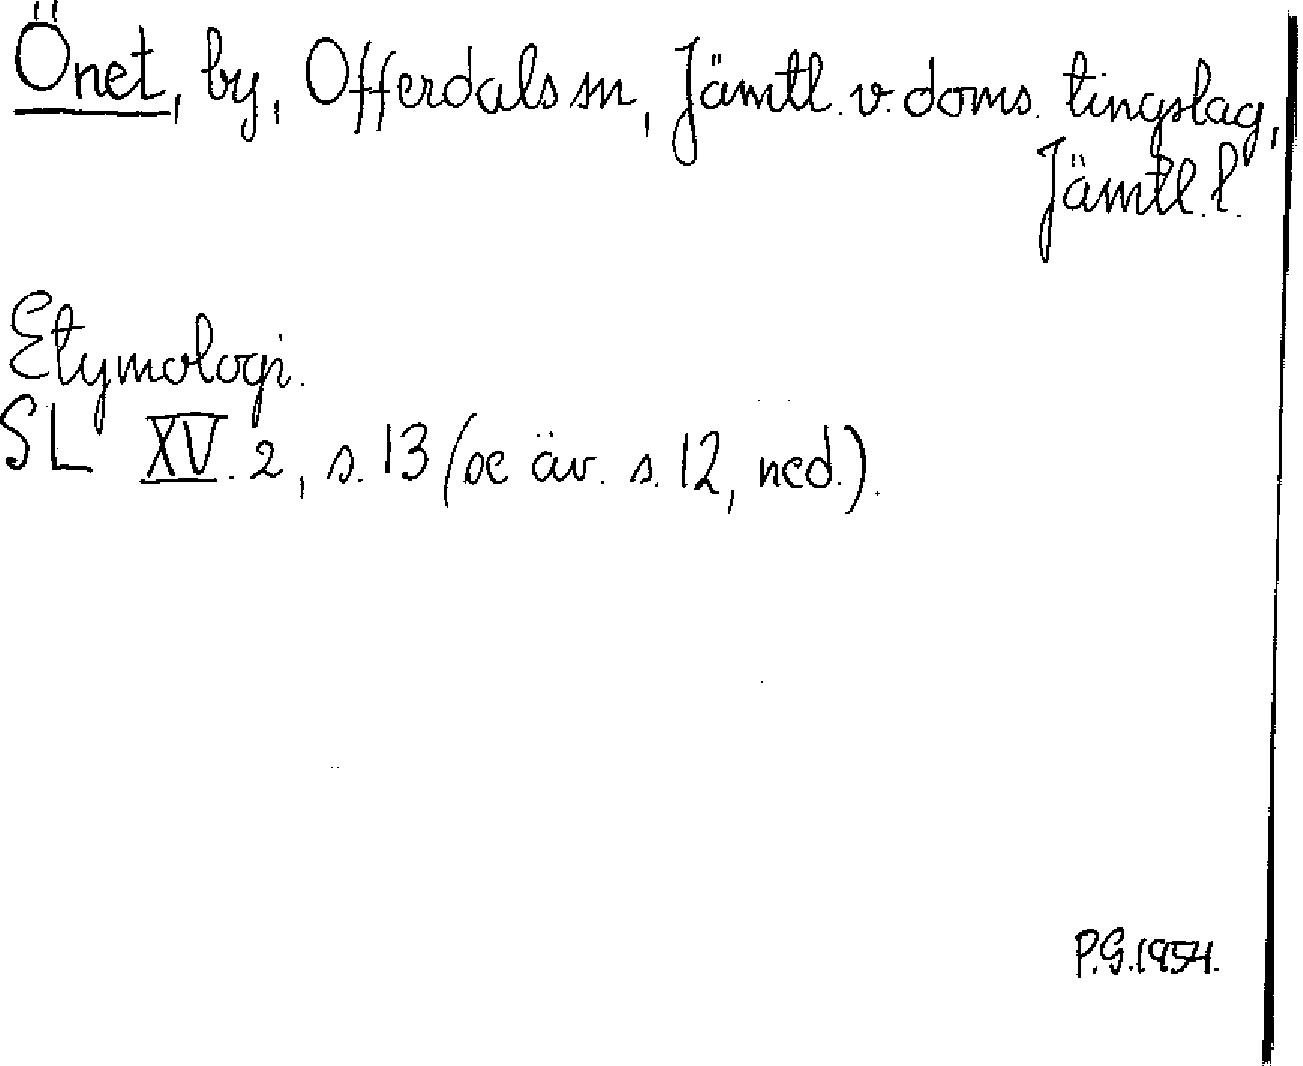 Önet, by, Offerdals sn, Jämtl. v. doms. tingslag,
Jämtl. l.
Etymologi.
SL XV. 2, s. 13 (se äv. s. 12, ned.).
P.G. 1954.